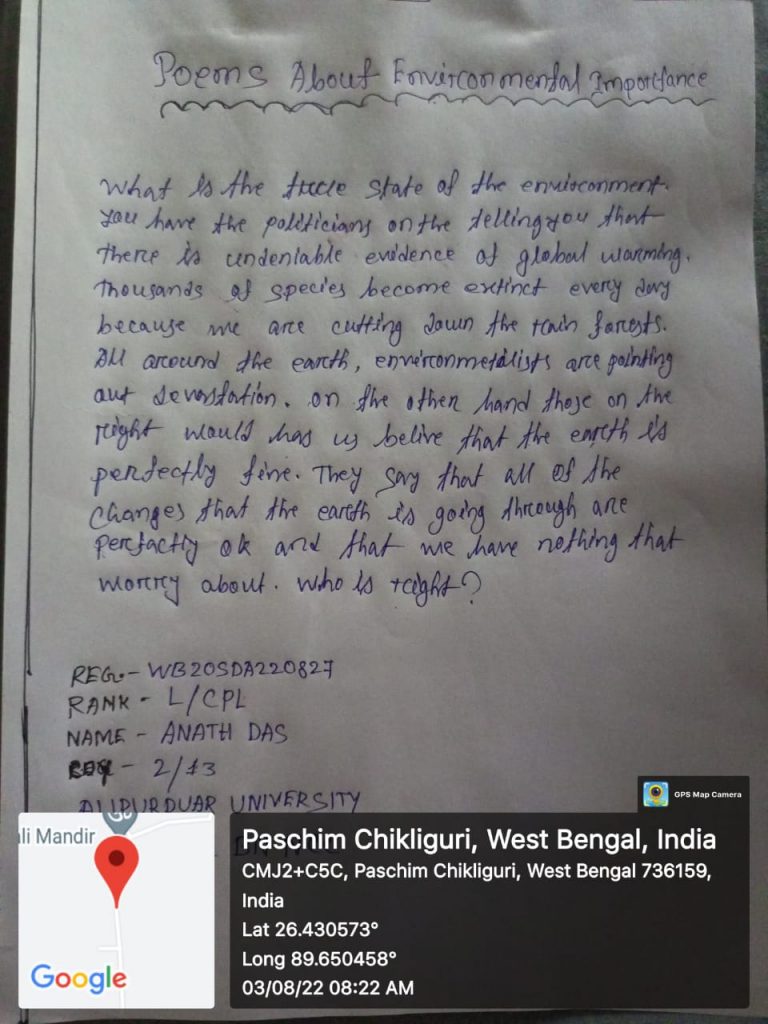 Poems About Environmental Importance
What is the true state of the environment.
You have the politicians on the telling you that
there is undeniable evidence of global warming.
thousands of species become extinct every day
because we are cutting down the rain forests.
All around the earth, environmetalists are pointing
out devastation. on the other hand those on the
right would has us belive that the earth is
perfectly fine. They say that all of the
changes that the earth is going through are
perfactly ok and that we have nothing that
worry about. Who is right?
REG.- WB20SDA220827
RANK - L/CPL
NAME - ANATH DAS
- 2/13
ALIPURDUAR UNIVERSITY
GPS Map Camera
li Mandir
Google
Paschim Chikliguri, West Bengal, India
CMJ2+C5C, Paschim Chikliguri, West Bengal 736159,
India
Lat 26.430573°
Long 89.650458°
03/08/22 08:22 AM